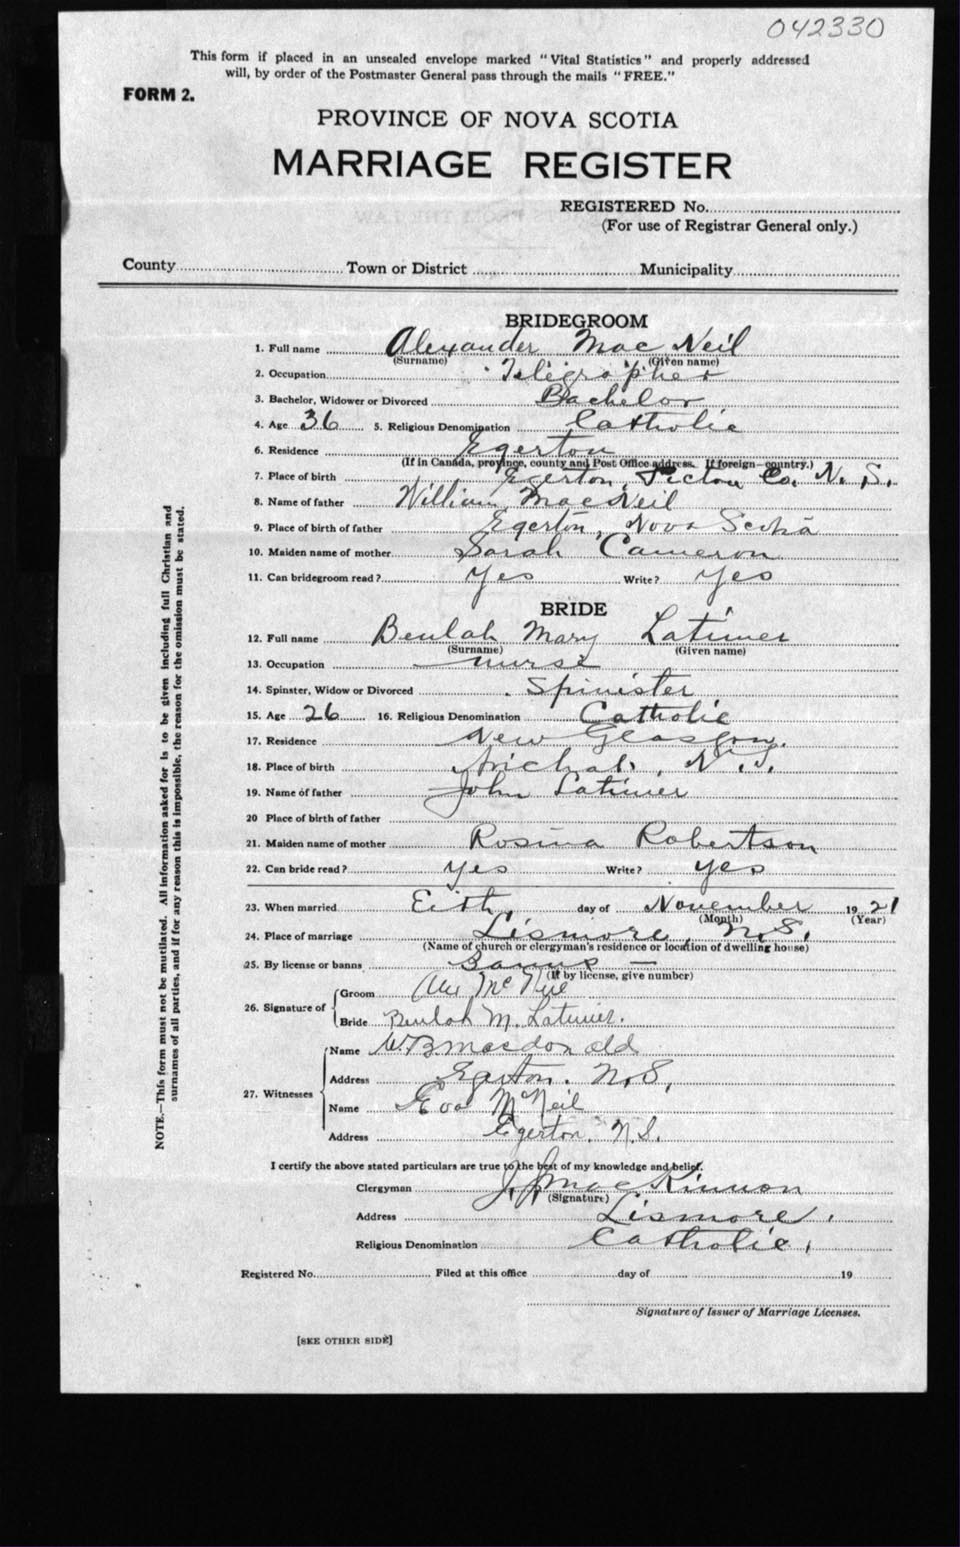 042330
This form if placed in an unsealed envelope marked "Vital Statistics" and properly addressed
will, by order of the Postmaster General pass through the mails "FREE."
FORM 2.
PROVINCE OF NOVA SCOTIA
MARRIAGE REGISTER
REGISTERED No.
(For use of Registrar General only.)
County Town or District Municipality
BRIDEGROOM
1. Full name Alexander Mac Neil
(Surname) (Given name)
2. Occupation Telegrapher
3. Bachelor, Widower or Divorced Bachelor
4. Age 36 5. Religious Denomination Catholic
6. Residence Egerton
(If in Canada, province, county and Post Office address. If foreign—country.)
7. Place of birth Egerton, Pictou Co. N. S.
8. Name of father William MacNeil
9. Place of birth of father Egerton, Nova Scotia
10. Maiden name of mother Sarah Cameron
11. Can bridegroom read? Yes Write? Yes
BRIDE
12. Full name Beulah Mary Latimer
(Surname) (Given name)
13. Occupation nurse
14. Spinster, Widow or Divorced Spinister
15. Age 26 16. Religious Denomination Catholic
17. Residence New Glasgow.
18. Place of birth N. S.
19. Name of father John Latimer
20 Place of birth of father
21. Maiden name of mother Rosina Robertson
22. Can bride read? Yes Write? Yes
23. When married Eith day of November 1921
(Month) (Year)
24. Place of marriage Lismore, N.S.
(Name of church or clergyman's residence or location of dwelling house)
25. By license or banns Banns —
(If by license, give number)
26. Signature of Groom Alex McNeil
Bride Beulah M. Latimer.
27. Witnesses Name W.B. Macdonald
Address Egerton. N.S.
Name Eva McNeil
Address Egerton. N.S.
I certify the above stated particulars are true to the best of my knowledge and belief.
Clergyman J. J. MacKinnon
(Signature)
Address Lismore.
Religious Denomination Catholic.
Registered No. Filed at this office day of 19
Signature of Issuer of Marriage Licenses.
[SEE OTHER SIDE]
NOTE.—This form must not be mutilated. All information asked for is to be given including full Christian and
surnames of all parties, and if for any reason this is impossible, the reason for the omission must be stated.